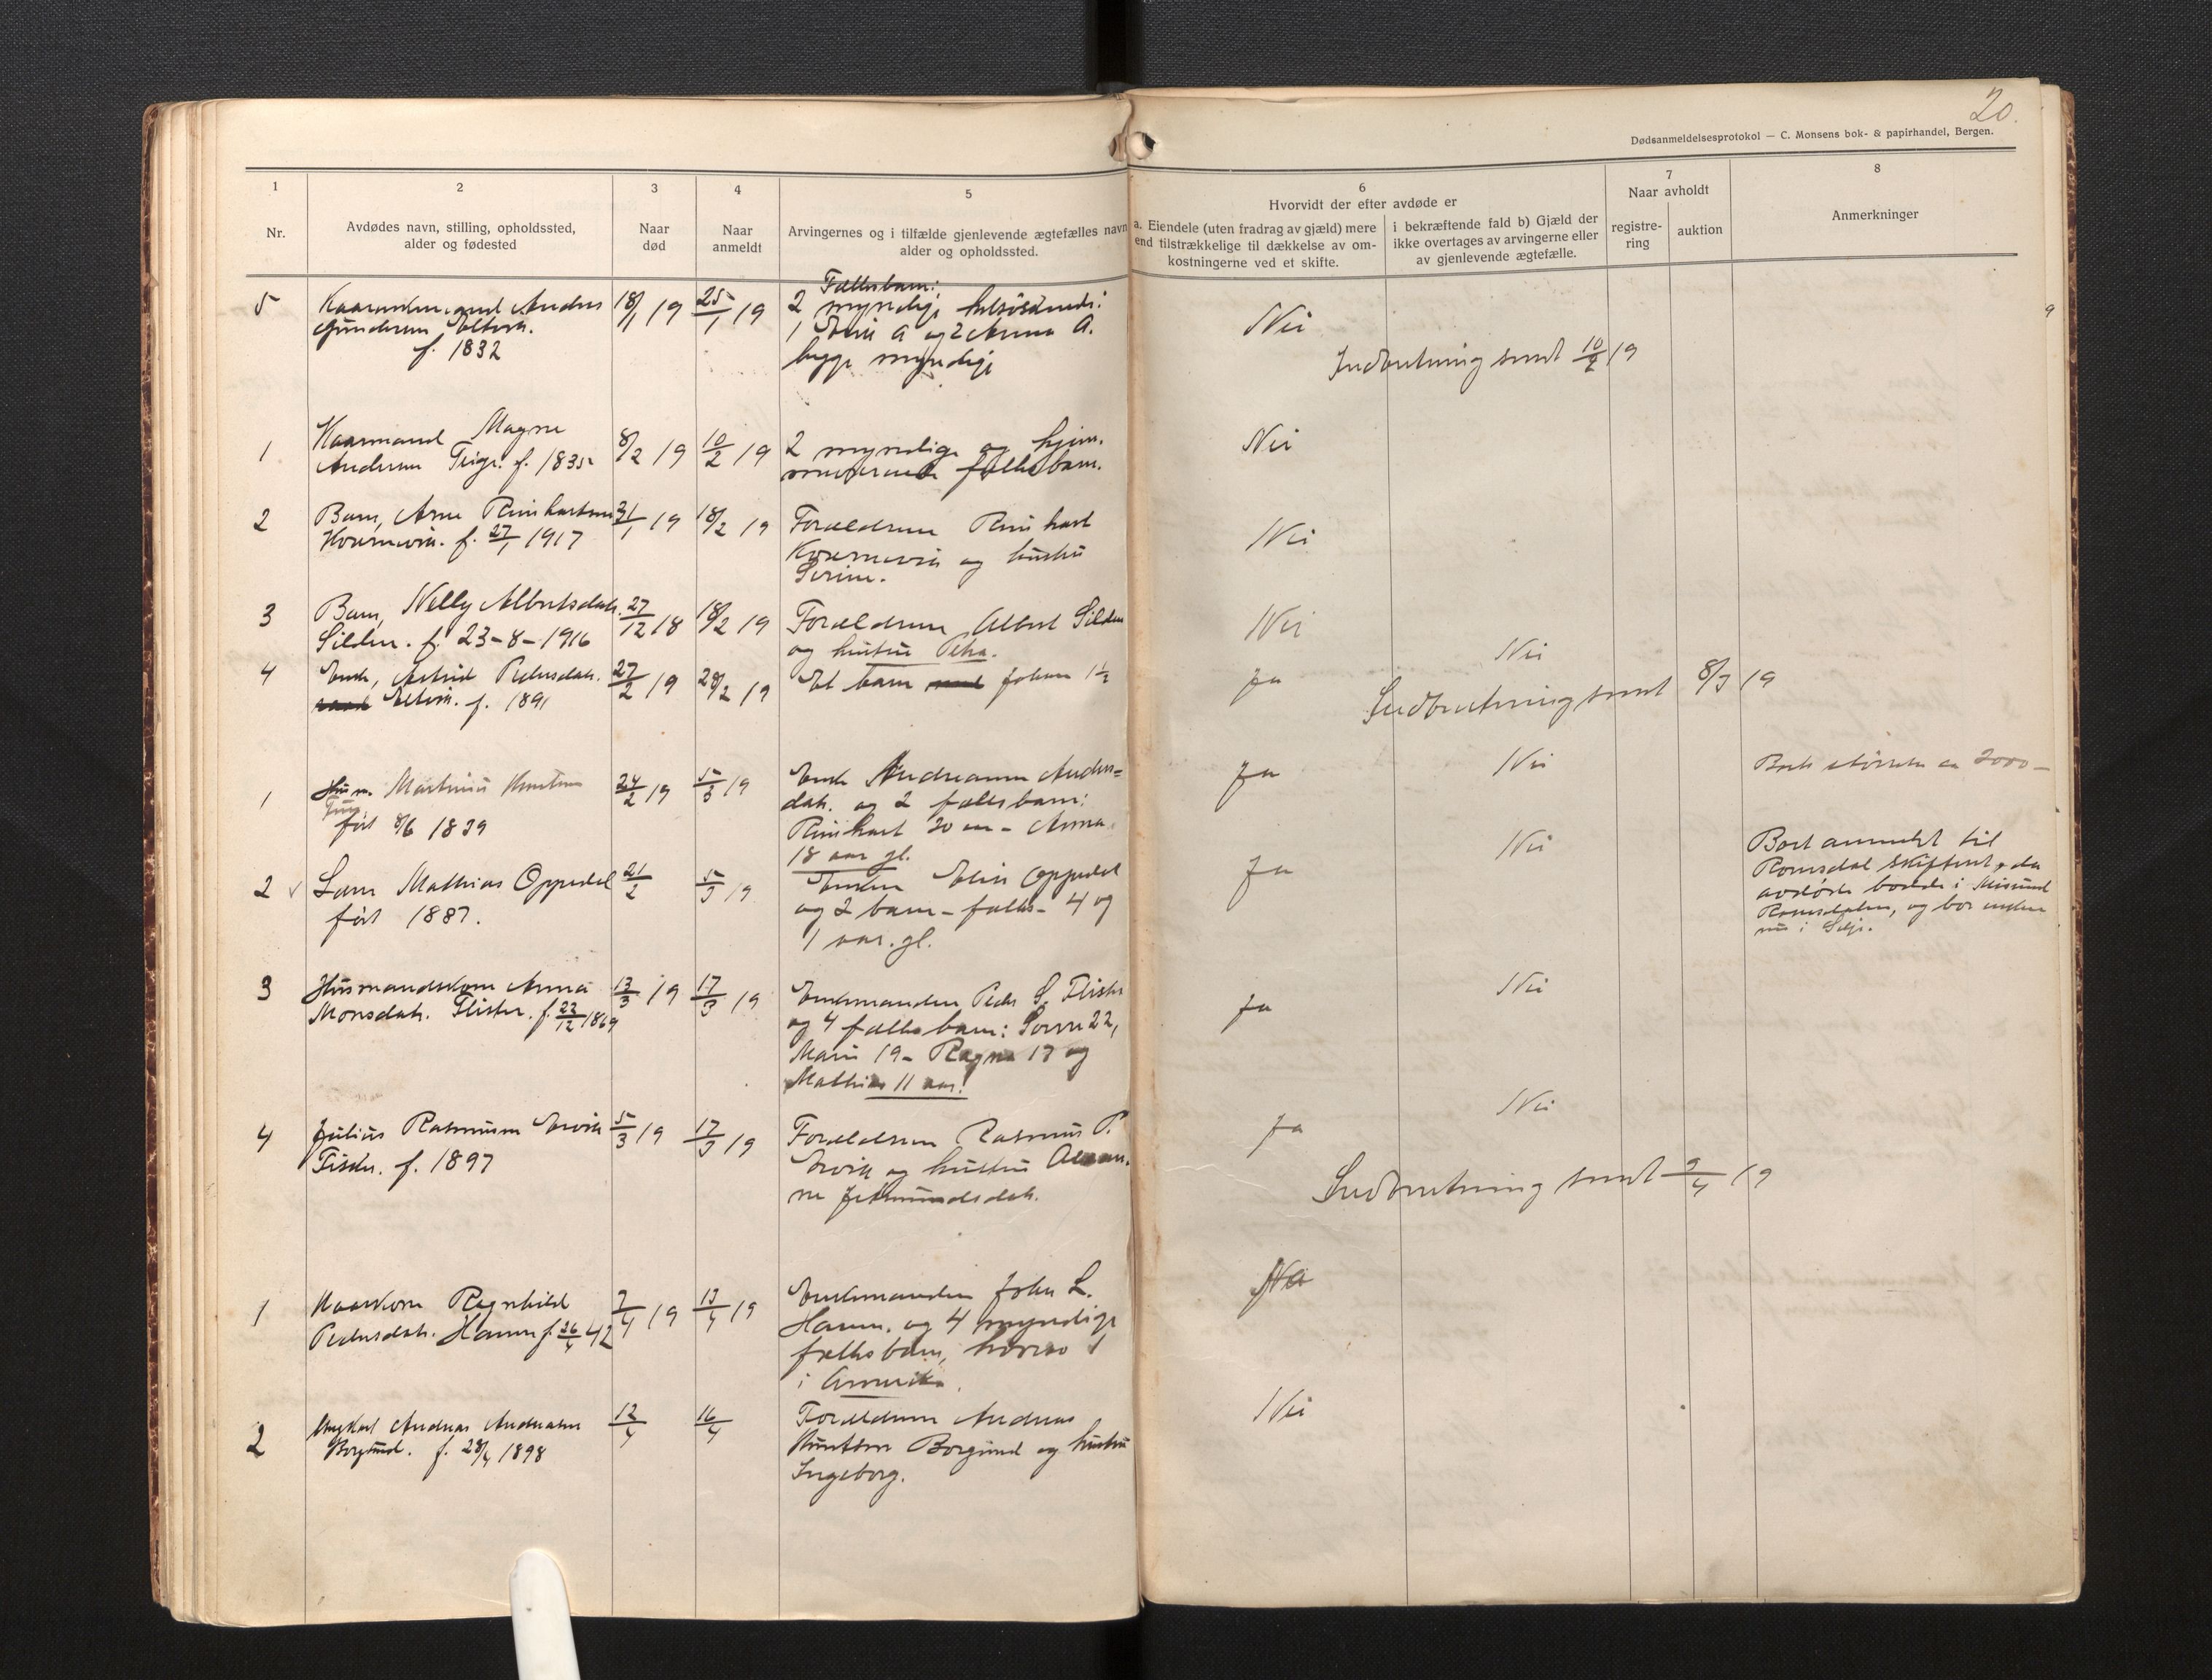 20.
Dødsanmeldelsesprotokol — C. Monsens bok- & papirhandel, Bergen.
1
Nr.
2
Avdødes navn, stilling, opholdssted,
alder og fødested
3
Naar
død
4
Naar
anmeldt
5
Arvingernes og i tilfælde gjenlevende ægtefælles navn
alder og opholdssted.
6
Hvorvidt der efter avdøde er
a. Eiendele (uten fradrag av gjæld) mere
end tilstrækkelige til dækkelse av om-
kostningerne ved et skifte.
i bekræftende fald b) Gjæld der
ikke overtages av arvingerne eller
av gjenlevende ægtefælle.
7
Naar avholdt
registre-
ring
auktion
8
Anmerkninger
5
Anders
Gundersen Eltvik.
f. 1832
18/1 19
25/1 19
Fællesbarn:
2 myndige
1 Elin A og 2 Anna A.
begge myndige
Nei
Indberetning sendt 10/2 19
1
Kaarmand Magne
Andersen Teige. f. 1835
8/2 19
10/2 19
2 myndige og hjem-
værende fællesbarn.
Nei
2
Barn, Arne Reinhartsen
f. 27/1 1917
31/1 19
18/2 19
Forældrene Reinhart
og hustru
Serine.
Nei
3
Barn, Nelly Albertsdatr.
Silden. f. 23-8-1916
27/12 18
18/2 19
Forældrene Albert Silden
og hustru Petra.
Nei
4
Enke, Astrid Pedersdatr.
Eltvik. f. 1891
27/2 19
28/2 19
Et barn Johan 1½
ja
Nei
Indberetning sendt 8/3 19
1
Husm. Martinus Knutsen
Teige
født 8/6 1839
24/2 19
5/3 19
Enke Andreanna Anders=
datr. og 2 fællesbarn:
Reinhart 20 aar - Anna
18 aar gl.
Ja
Nei
Boets størrelse ca 2000—
2
Mathias Oppedal
født 1887.
21/2
5/3 19
Enken Elin Oppedal
og 2 barn - fælles - 4 og
1 aar. gl.
Ja
Nei
Boet anmeldt til
Romsdal skifteret, da
avdøde bodde i Misund
Romsdalen, og bor enken
nu i Selje.
3
Husmandskone Anna
Monsdatr. Flister. f. 22/12 1869
13/3 19
17/3 19
Enkemanden Peder S. Flister
og 4 fællesbarn: 22,
Marie 19 - Ragna 17 og
Mathias 11 aar!
ja
Nei
4
Julius Rasmussen Ervik
Fisker. f. 1897
5/3 19
17/3 19
Forældrene Rasmus P.
Ervik og hustru
ja
Nei
Indberetning sendt 9/4 19
1
Kaarkone Ragnhild
Pedersdatr. Hamre f. 26/4 42
7/4 19
13/4 19
Enkemanden John L.
Hamre. og 4 myndige
fællesbarn, hvorav 1
i Amerika.
2
Ungkarl Andreas Andreassen
Borgund. f. 28/4 1898
12/4
16/4
Forældrene Andreas
Knutsen Borgund og hustru
Ingeborg.
Nei